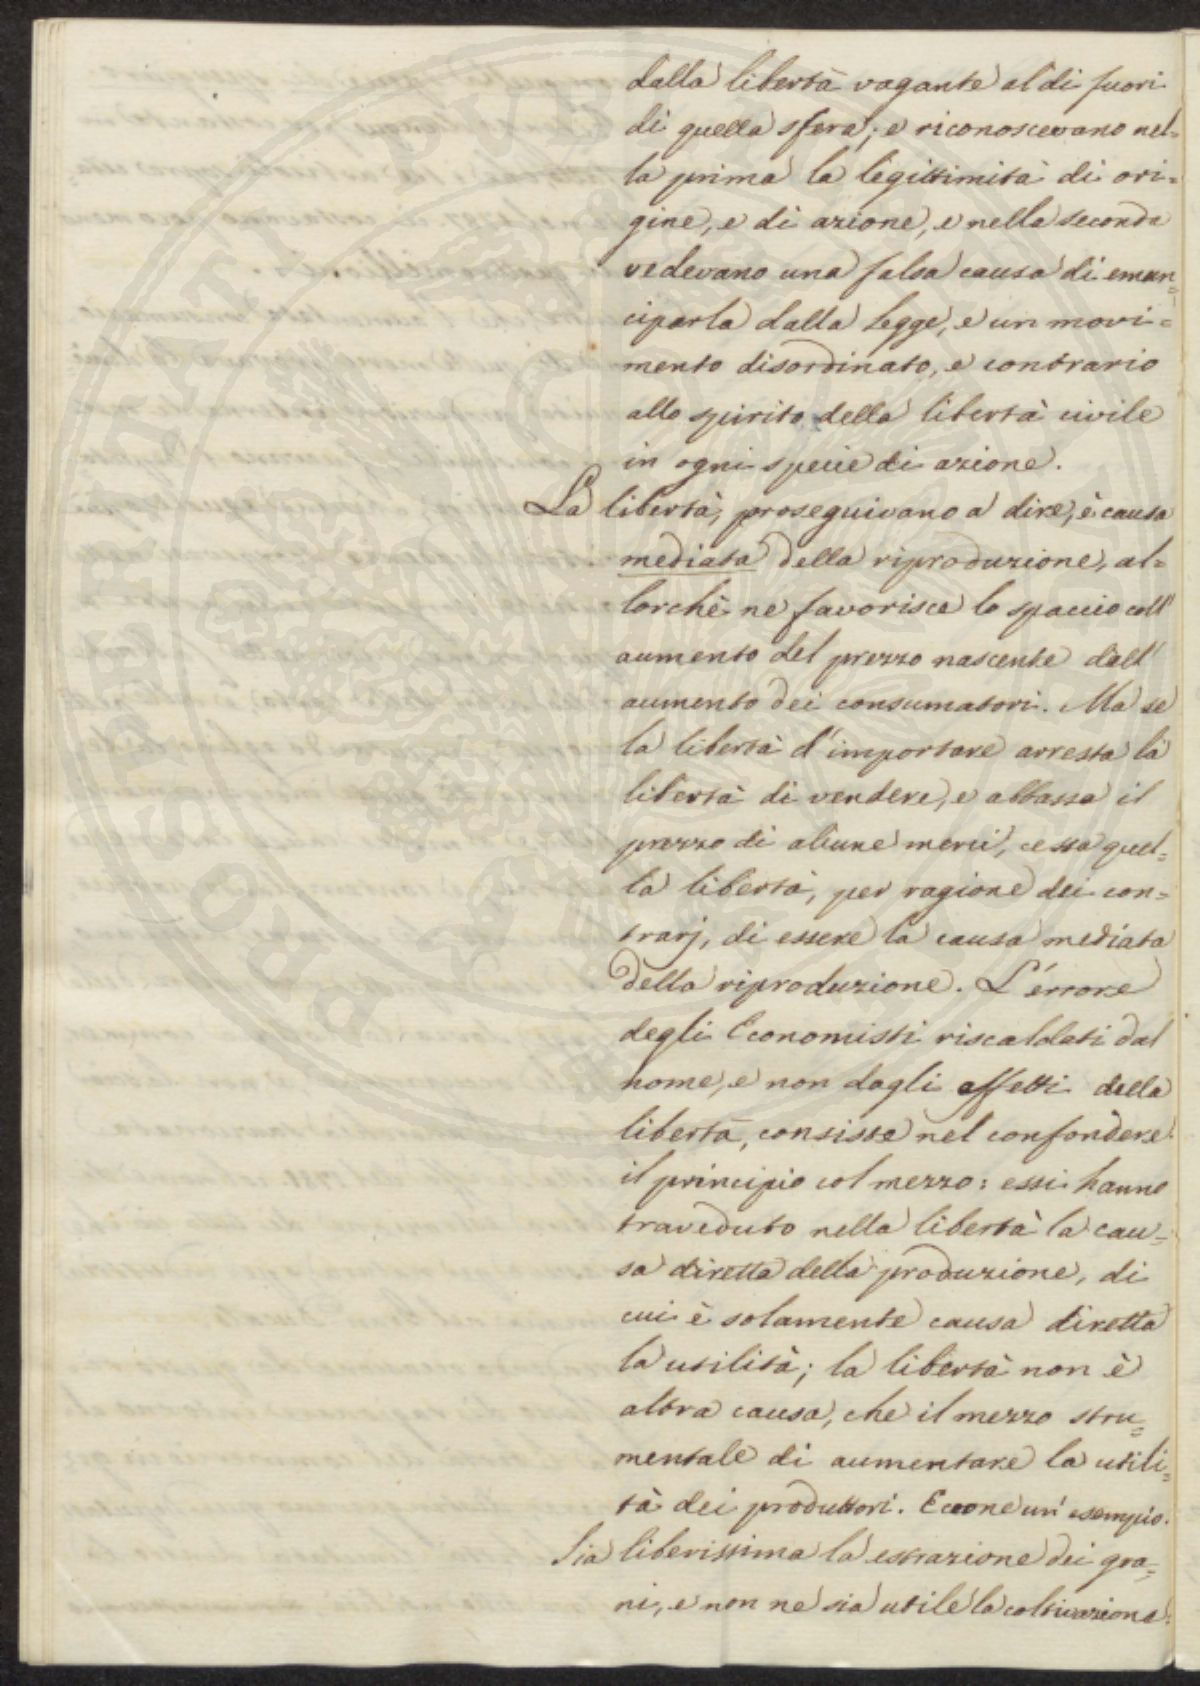 dalla libertà vagante al di fuori
di quella sfera; e riconoscevano nel=
la prima la legittimità di ori=
gine, e di azione, e nella seconda
vedevano una falsa causa di eman=
ciparla dalla legge, e un movi=
mento disordinato, e contrario
allo spirito della libertà civile
in ogni specie di azione.
La libertà, proseguivano a dire, è causa
mediata della riproduzione, al=
lorchè ne favorisce lo spaccio coll'
aumento del prezzo nascente dall'
aumento dei consumatori. Ma se
la libertà d'importare arresta la
libertà di vendere, e abbassa il
prezzo di alcune merci, cessa quel=
la libertà, per ragione dei con=
trarj, di essere la causa mediata
della riproduzione. L'errore
degli Economisti riscaldati dal
nome, e non dagli effetti della
libertà, consiste nel confondere
il principio col mezzo: essi hanno
traveduto nella libertà la cau=
sa diretta della produzione, di
cui è solamente causa diretta
la utilità; la libertà non è
altra causa, che il mezzo stru=
mentale di aumentare la utili=
tà dei produttori. Eccone un' esempio.
Sia liberissima la estrazione dei gra=
ni, e non ne sia utile la coltivazione: